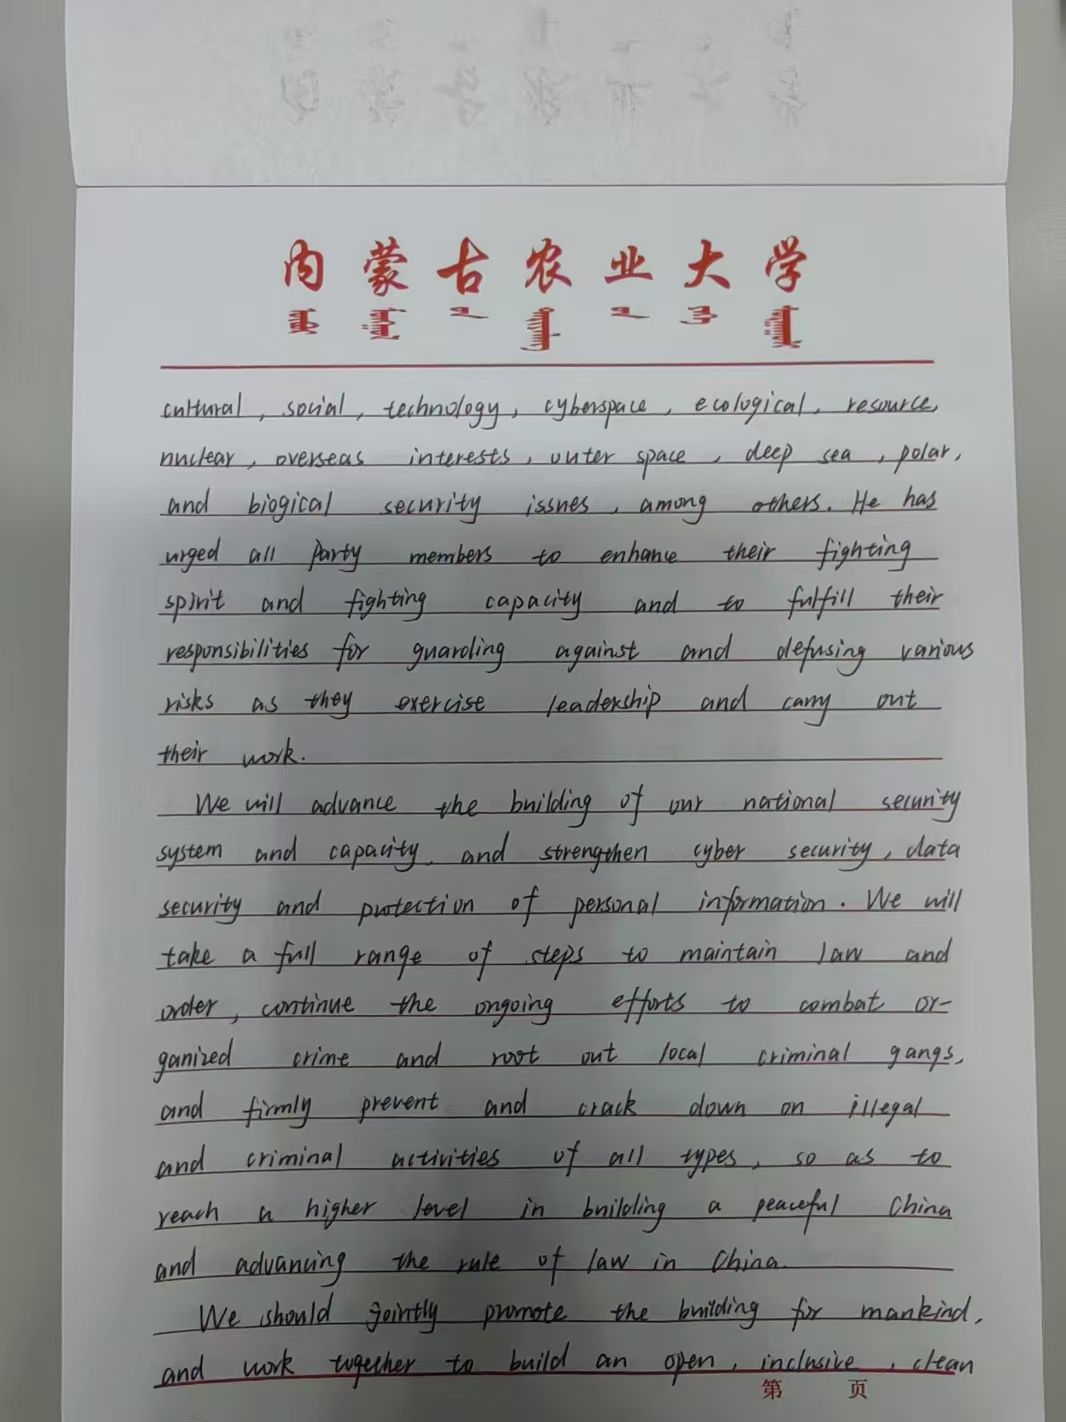 内蒙古农业大学
cultural, social, technology, cyberspace, ecological, resource,
nuclear, overseas interests, outer space, deep sea, polar,
and biogical security issues, among others. He has
urged all Party members to enhance their fighting
spirit and fighting capacity and to fulfill their
responsibilities for guarding against and defusing various
risks as they exercise leadership and carry out
their work.
We will advance the building of our national security
system and capacity, and strengthen cyber security, data
security and protection of personal information. We will
take a full range of steps to maintain law and
order, continue the ongoing efforts to combat or-
ganized crime and root out local criminal gangs,
and firmly prevent and crack down on illegal
and criminal activities of all types, so as to
reach a higher level in building a peaceful China
and advancing the rule of law in China.
We should jointly promote the building for mankind,
and work together to build an open, inclusive, clean
第 页